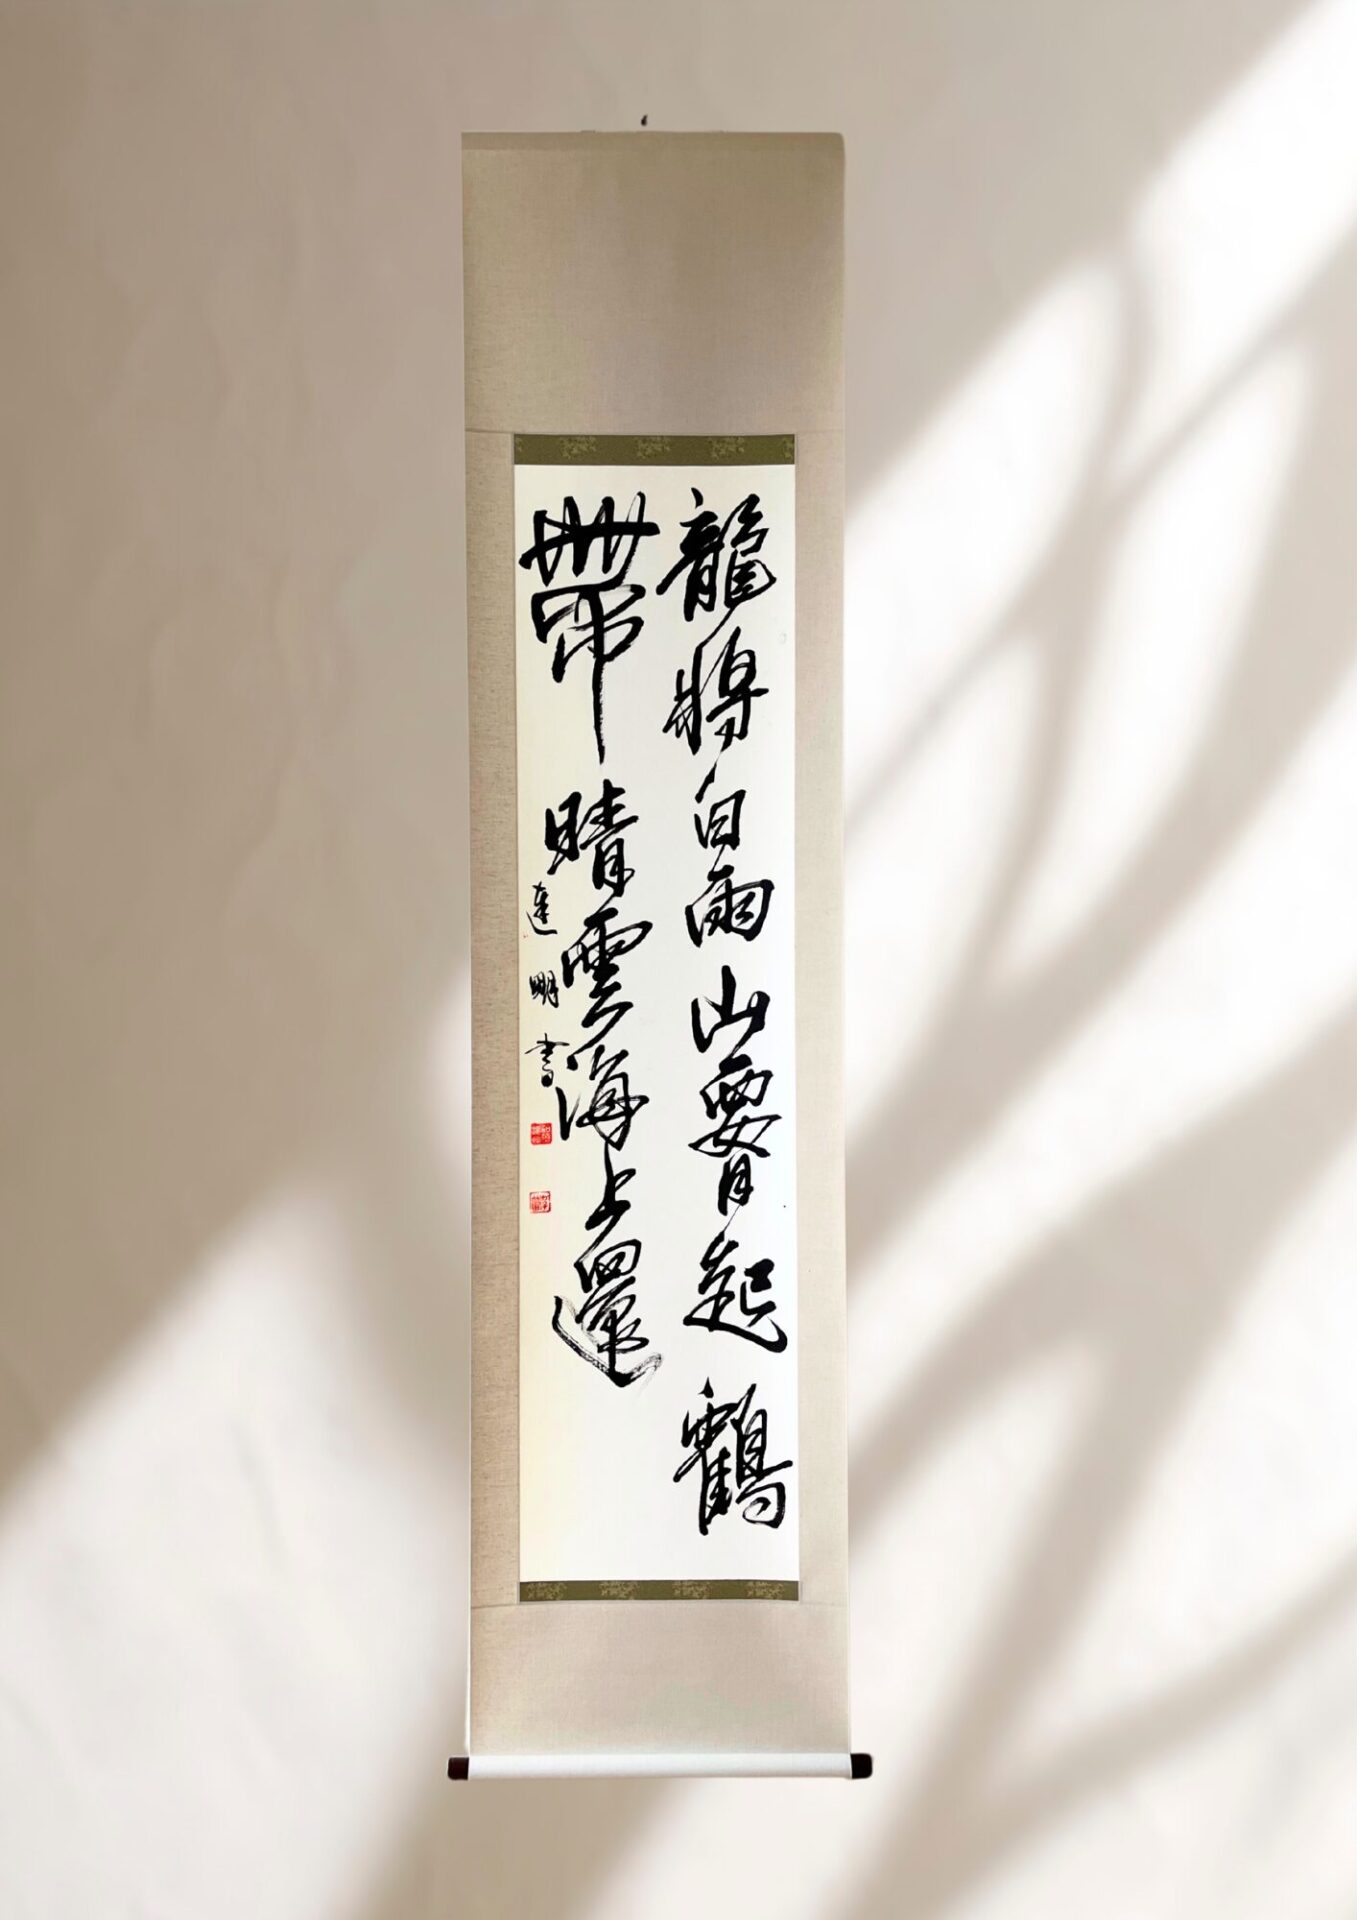 龍將白雨山腰起鶴
帶晴雲海上還
明書